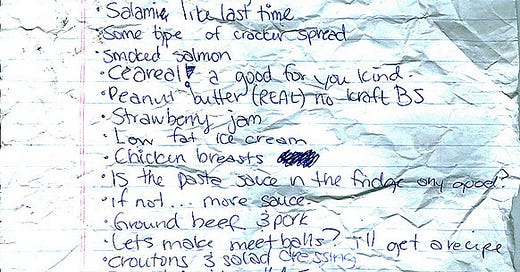 · Salami, like last time
· Some type of cracker spread
· smoked salmon
· Ceareal! a good for you kind.
· Peanut butter (REAL) no kraft BS
· Strawberry jam
· Low fat ice cream
· Chicken breasts
· Is the pasta sauce in the fridge any good?
· if not... more sauce.
· Ground beef & pork
· Let's make meetballs? i'll get a recipe
· croutons & salad dressing